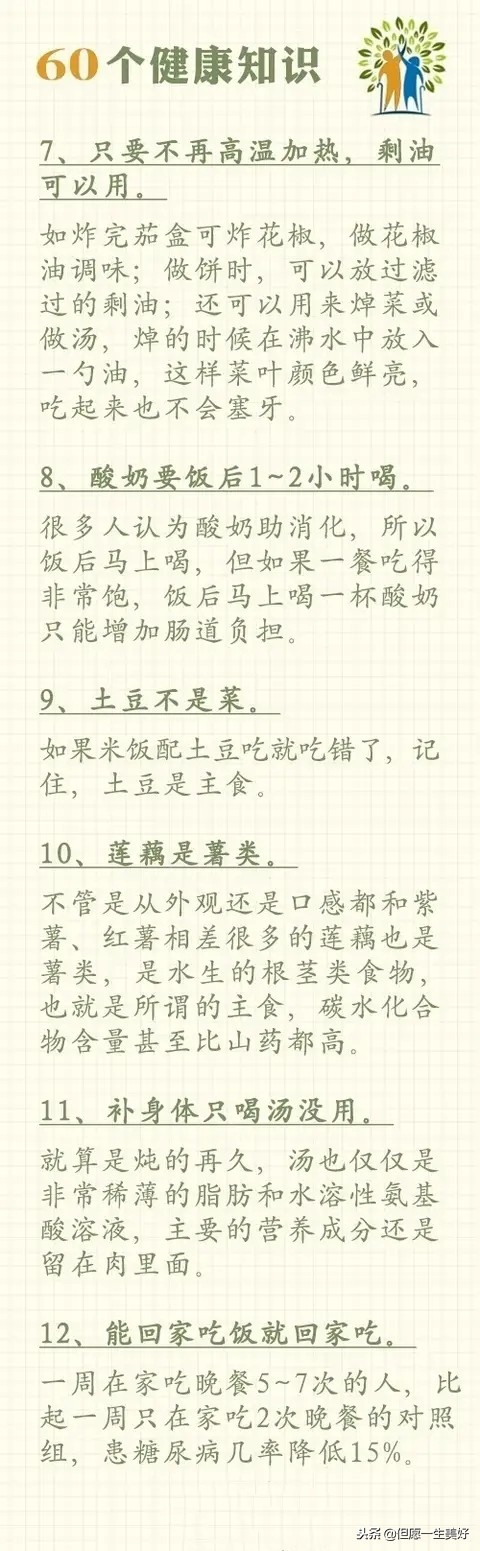 60个健康知识
7、只要不再高温加热，剩油
可以用。
如炸完茄盒可炸花椒，做花椒
油调味；做饼时，可以放过滤
过的剩油；还可以用来焯菜或
做汤，焯的时候在沸水中放入
一勺油，这样菜叶颜色鲜亮，
吃起来也不会塞牙。
8、酸奶要饭后1~2小时喝。
很多人认为酸奶助消化，所以
饭后马上喝，但如果一餐吃得
非常饱，饭后马上喝一杯酸奶
只能增加肠道负担。
9、土豆不是菜。
如果米饭配土豆吃就吃错了，记
住，土豆是主食。
10、莲藕是薯类。
不管是从外观还是口感都和紫
薯、红薯相差很多的莲藕也是
薯类，是水生的根茎类食物，
也就是所谓的主食，碳水化合
物含量甚至比山药都高。
11、补身体只喝汤没用。
就算是炖的再久，汤也仅仅是
非常稀薄的脂肪和水溶性氨基
酸溶液，主要的营养成分还是
留在肉里面。
12、能回家吃饭就回家吃。
一周在家吃晚餐5~7次的人，比
起一周只在家吃2次晚餐的对照
组，患糖尿病几率降低15%。
头条 @但愿一生美好